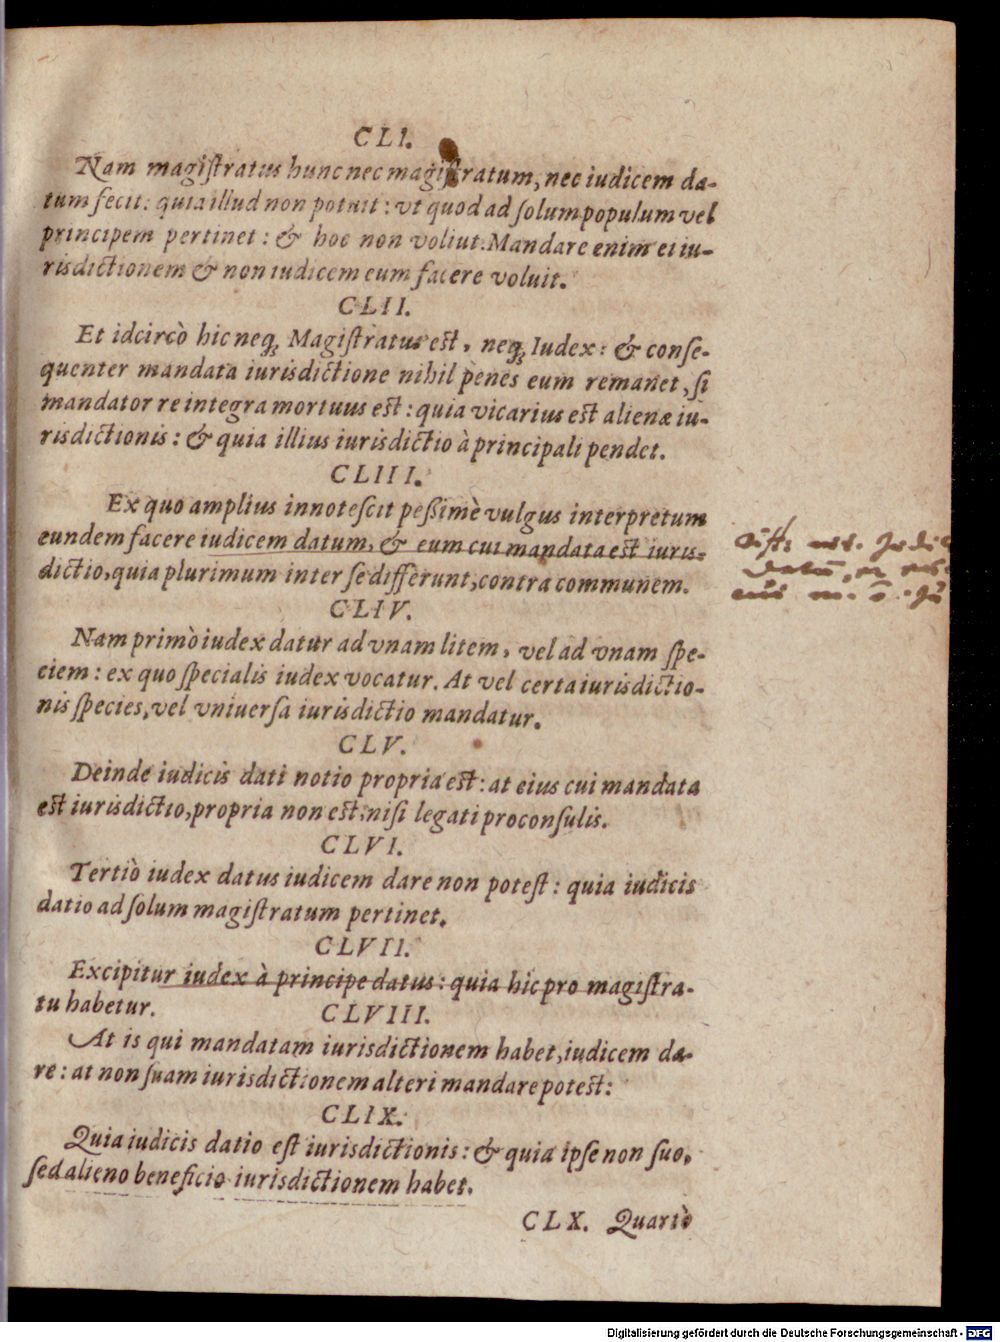 CLI.
Nam magiſtratus hunc nec magiſtratum, nec iudicem da-
tum fecit: quia illud non potuit: vt quod ad ſolum populum vel
principem pertinet: & hoc non voliut. Mandare enim ei iu-
risdictionem & non iudicem eum facere voluit.
CLII.
Et idcircò hic neq; Magiſtratus est, neq; Iudex: & conſe-
quenter mandata iurisdictione nihil penes eum remanet, ſi
mandator re integra mortuus est: quia vicarius est alienæ iu-
risdictionis: & quia illius iurisdictio à principali pendet.
CLIII.
Ex quo amplius innoteſcit peßimè vulgus interpretum
eundem facere iudicem datum, & eum cui mandata est iuris-
dictio, quia plurimum inter ſe differunt, contra communem.
CLIV.
Nam primò iudex datur ad vnam litem, vel ad vnam ſpe-
ciem: ex quo ſpecialis iudex vocatur. At vel certa iurisdictio-
nis ſpecies, vel vniuerſa iurisdictio mandatur.
CLV.
Deinde iudicis dati notio propria est: at eius cui mandata
est iurisdictio, propria non est, niſi legati proconſulis.
CLVI.
Tertiò iudex datus iudicem dare non poteſt: quia iudicis
datio ad ſolum magiſtratum pertinet.
CLVII.
Excipitur iudex à principe datus: quia hic pro magiſtra-
tu habetur.
CLVIII.
At is qui mandatam iurisdictionem habet, iudicem da-
re: at non ſuam iurisdictionem alteri mandare potest:
CLIX.
Quia iudicis datio eſt iurisdictionis: & quia ipſe non ſuo,
ſed alieno beneficio iurisdictionem habet.
CLX. Quartò
Digitalisierung gefördert durch die Deutsche Forschungsgemeinschaft - DFG